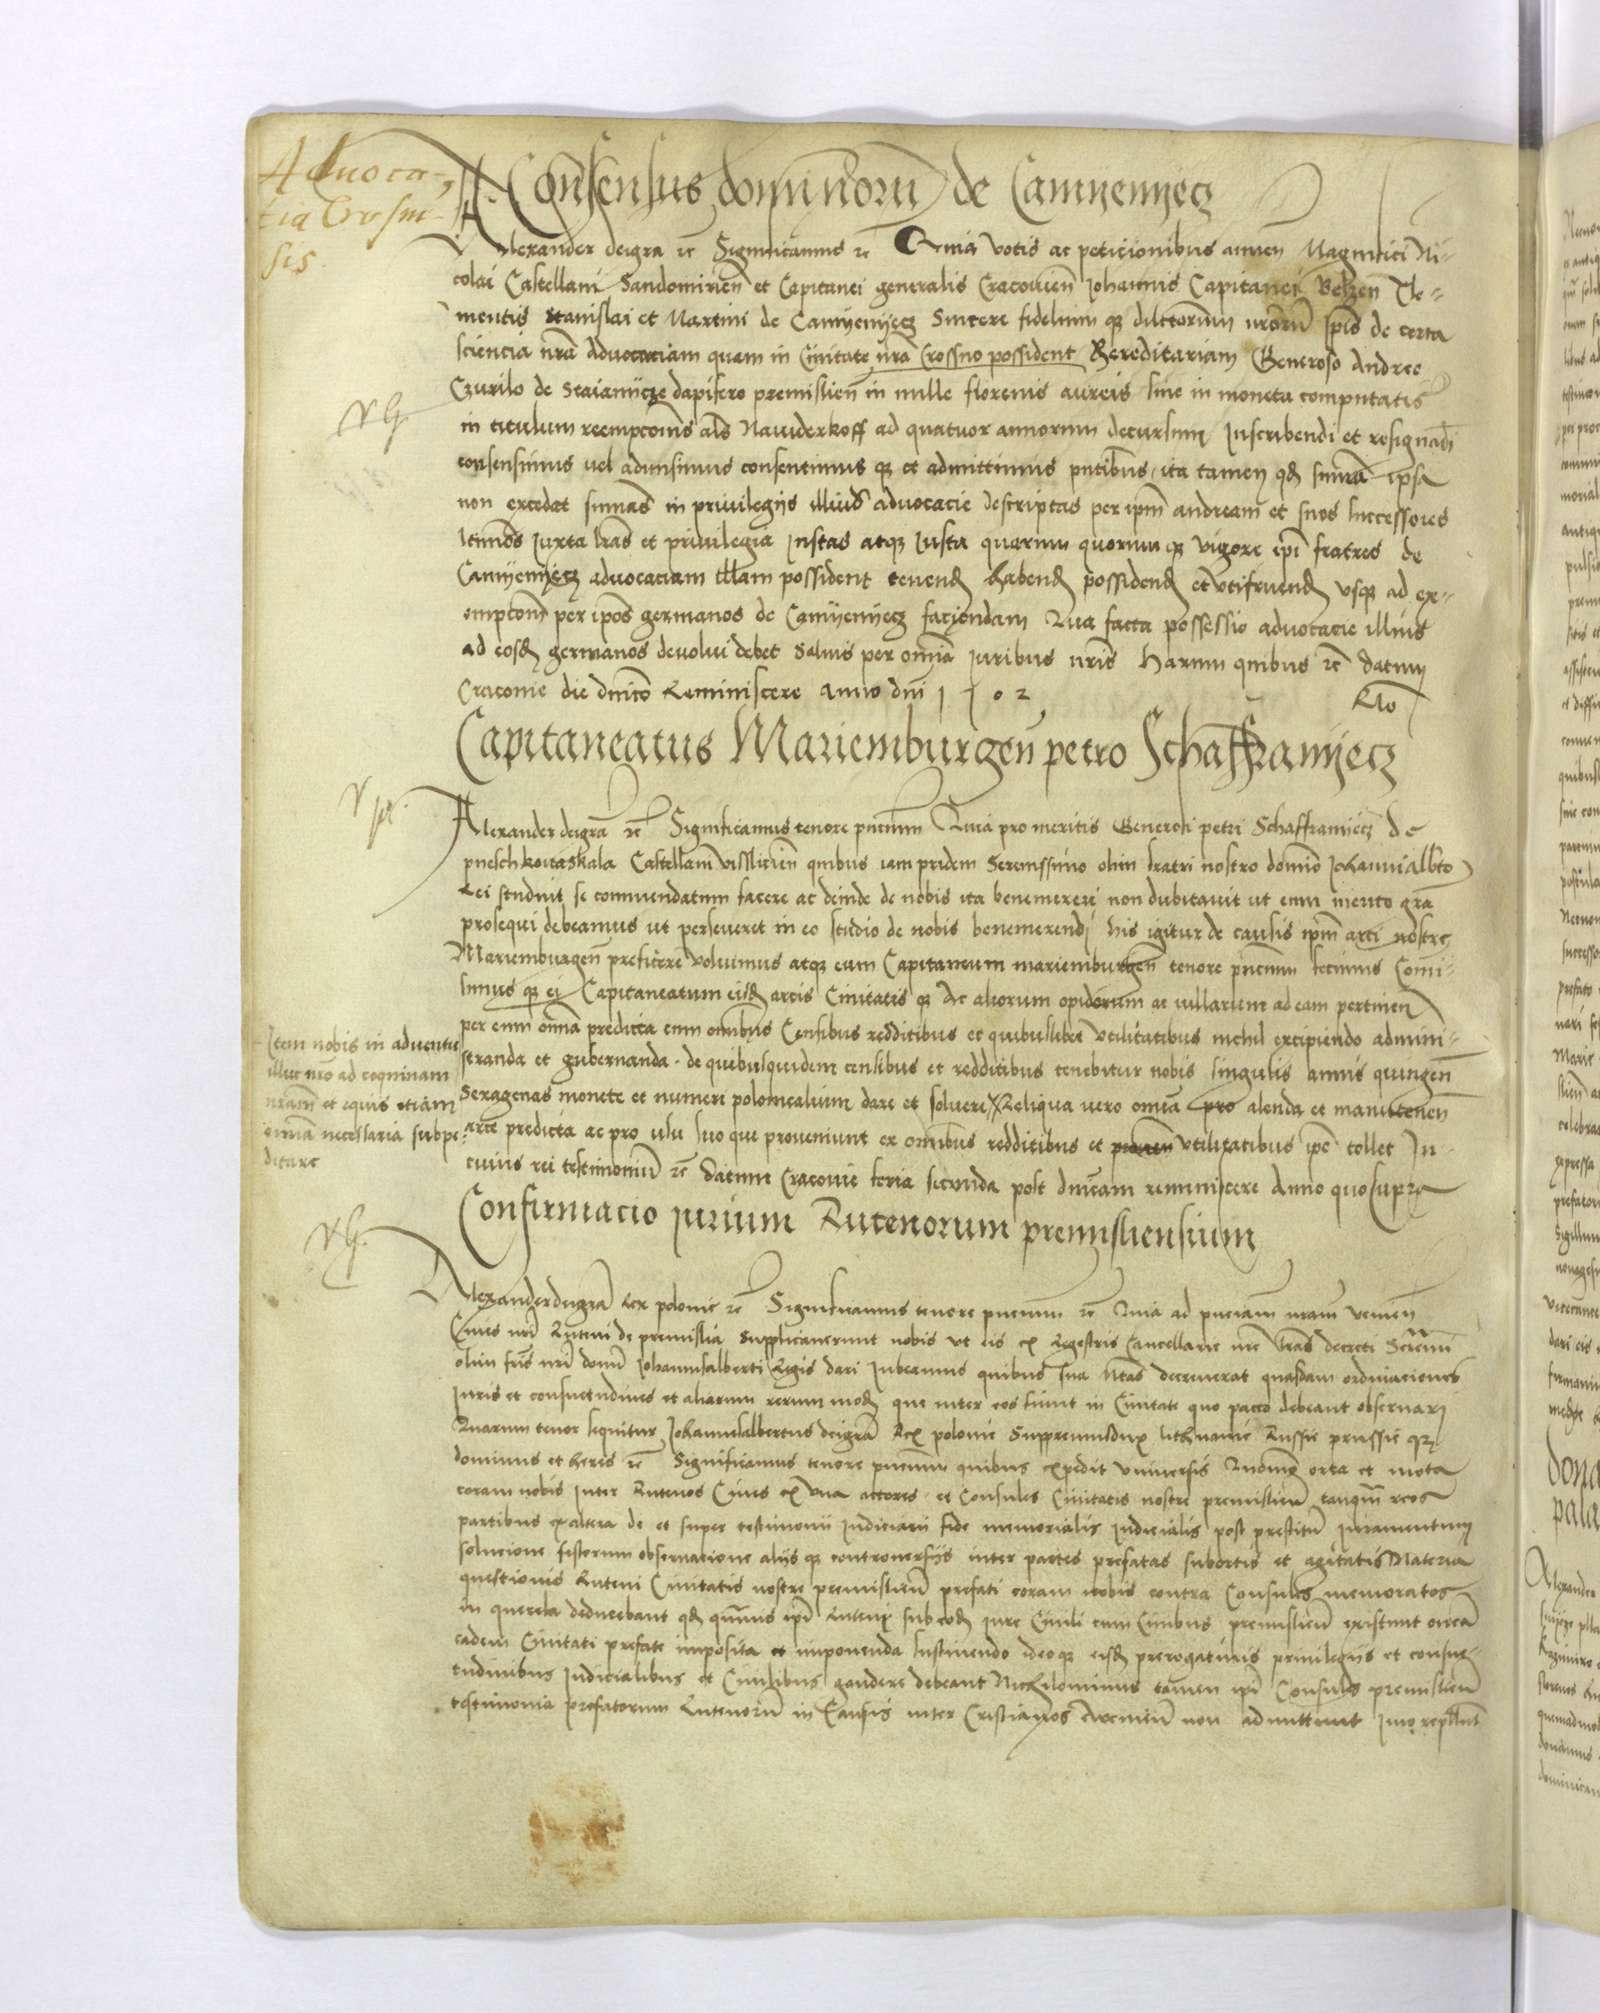 Aduoca-
tia Crosn-
sis
Consensus dominorū de Camyenyecz
Alexander deigra rc Significamus rc Quia votis ac peticionibus amien Magnifici Ni-
colai Castellani Sandomirien̄ et Capitanei generalis Cracouien̄ Johannis Capitanei Belzen̄ Cle-
mentis Stanislai et Martini de Camyenyecz Sincere fidelium qʒ dilectorum nrorū ipis de certa
sciencia nrā Aduocaciam quam in Ciuitate nrā Crossno possident Hereditariam Generoso Andree
Czurilo de Stoianycze dapifero premislien̄ in mille florenis aureis siue in moneta computatis
in titulum reempcionis als Nawiderkoff ad quatuor annorum decursum Inscribendi et resignādi
consensimus vel admisimus consentimus qʒ et admittimus pntibus ita tamen qd summa ipsa
non excedat summas in priuilegijs illius aduocacie descriptas per ipm andream et suos successores
ltimos Juxta lras et priuilegia Justas atqʒ Justa quarum quorum qʒ vigore ipi fratres de
Camyenyecz aduocaciam illam possident tenend habend possidend et vtifruend vsqʒ ad ex-
empcoem per ipos germanos de Camyenyecz faciendam Qua facta possessio aduocacie illius
ad eosd germanos deuolui debet Saluis per omnia juribus nris Harum quibus rc datum
Cracouie die dnico Reminiscere anno dni 1502
Rlo
Capitaneatus Mariemburgen̄ petro Schaffranyecz
Alexander deigra rc Significamus tenore pncium Quia pro meritis Generosi petri Schaffranyecz de
pyeschkowaskala Castellani vissliciēn quibus iam pridem Serenissimo olim fratri nostro domino Johannialbto
Rei studuit se commendatum facere ac deinde de nobis ita benemereri non dubitauit ut eum merito gra
prosequi debeamus ut perseueret in eo studio de nobis benemerendj his igitur de causis ipm arci nostre
Mariemburgen̄ preficere voluimus atqʒ eum Capitaneum mariemburgen̄ tenore pncium fecimus Comi-
simus qʒ ei Capitaneatum eisd arcis Ciuitatis qʒ Ac aliorum opidorum ac villarum ad eam pertinen̄
per eum omā predicta cum omībus Censibus redditibus et quibuslibet vtilitatibus nichil excipiendo admini-
stranda et gubernanda . de quibusquidem censibus et redditibus tenebitur nobis singulis annis quingen̄
Sexagenas monete et numeri polonicalium dare et soluere / Reliqua vero omīa pro alenda et manutenen̄
arce predicta ac pro usu suo que proueniunt ex omībus redditibus et vtilitatibus ipe tollet In
cuius rei testimoniū rc Datum Cracouie feria secunda post dnicam reminiscere Anno quo supra
Item nobis in aduentu
illuc nro ad coquinam
nram et equis etiam
omnia necessaria subpe-
ditare
Confirmacio jurium Rutenorum premisliensium
Alexander deigra Rex polonie rc Significamus tenore pncium rc Quia ad pnciam nram venien̄
Ciues nri Ruteni de premislia Supplicauerunt nobis vt eis ex Regestris Cancellarie nre lras decreti Serēmi
olim fris nri domi Johannisalberti Regis dari Juberemus quibus sua stas decreuerat quasdam ordinaciones
Juris et consuetudines et aliarum rerum mod que inter eos fiunt in Ciuitate quo pacto debeant obseruarj
Quarum tenor sequitur Johannesalbertus deigra Rex polonie Suppremusdux lithuanie Russie prussie qʒ
dominus et heres rc Significamus tenore pncium quibus expedit vniuersis Quomō orta et mota
coram nobis Inter Rutenos Ciues ex vna actores et Consules Ciuitatis nostre premislien̄ tanqm reos
partibus exaltera de et super testimonii Judiciarii fide memorialis Judicialis post prestitū juramentum
solucione festorum obseruacione alijs qʒ controuersijs inter partes prefatas subortis et agitatis Materia
questionis Ruteni Ciuitatis nostre premislien̄ prefati coram nobis contra Consules memoratos
in querela deducebant qd qmuis ipi Ruteni sub eod jure Ciuili cum Ciuibus premislien̄ existunt onera
eadem Ciuitati prefate imposita et imponenda sustinendo ideoqʒ eisd prerogatiuis priuilegijs et consue-
tudinibus Judicialibus et Ciuilibus gaudere debeant Nichilominus tamen ipi Consules premislien̄
testimonia prefatorum Rutenorū in Causis inter Cristianos Armenū non admittunt Jmo repellunt